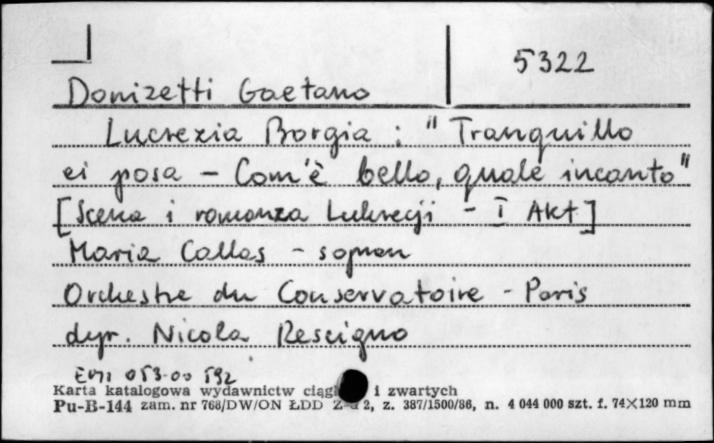 5322
Donizetti Gaetano
Lucrezia Borgia : "Tranquillo
ei posa - Com'è bello, quale incanto"
[Scena i romanza Lukrecji - I Akt]
Maria Callas - sopran
Orchestre du Conservatoire - Paris
dyr. Nicola Rescigno
EMI 053-00 592
Karta katalogowa wydawnictw i zwartych
Pu-B-144 zam. nr 768/DW/ON ŁDD 2, z. 387/1500/86, n. 4 044 000 szt. f. 74×120 mm